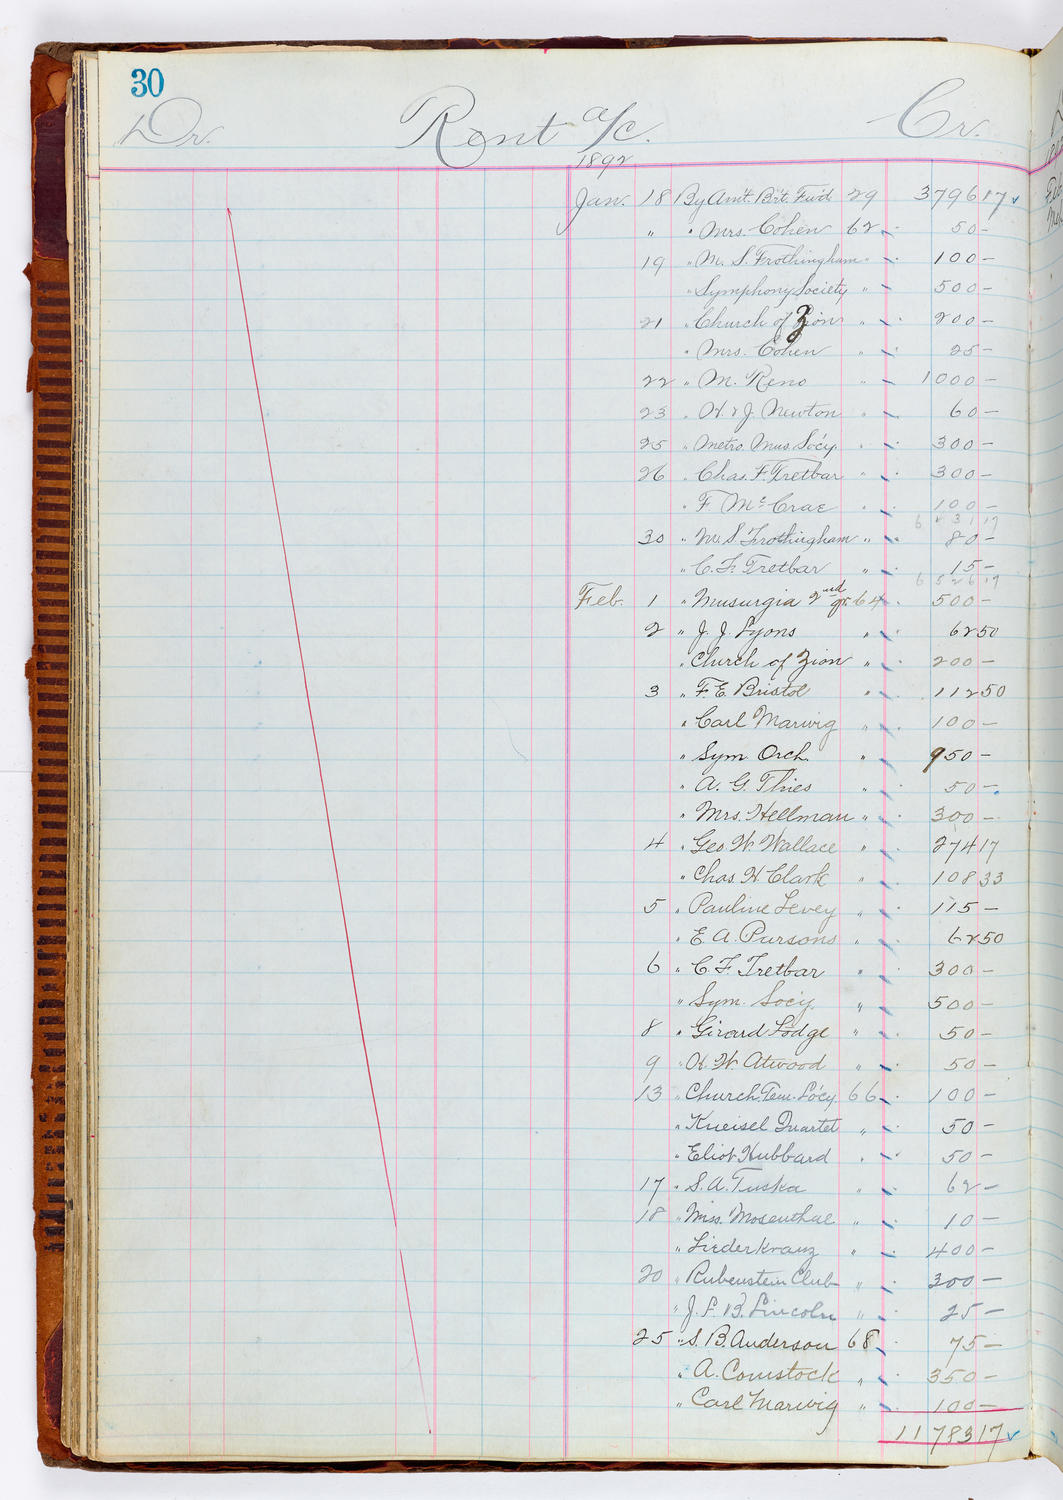 30
Dr. Rent a/c. Cr.
1892
Jan. 18 By Am't. Br't. Fw'd 29 3796 17
" " Mrs. Cohen 62 50 -
19 " M. S. Frothingham " 100 -
" Symphony Society " 500 -
21 " Church of Zion " 200 -
" Mrs. Cohen " 25 -
22 " M. Reno " 1000 -
23 " H. & J. Newton " 60 -
25 " Metro. Mus. Soc'y. " 300 -
26 " Chas. F. Tretbar " 300 -
" F. Mc Crae " 100 -
6431 17
30 " M. S. Frothingham " 80 -
" C. F. Tretbar " 15 -
6526 17
Feb. 1 " Musurgia 2nd qr. 64 500 -
2 " J. J. Lyons " 62 50
" Church of Zion " 200 -
3 " F. E. Bristol " 112 50
" Carl Marwig " 100 -
" Sym Orch. " 950 -
" A. G. Thies " 50 -
" Mrs. Hellman " 300 -
4 " Geo. W. Wallace " 274 17
" Chas. H. Clark " 108 33
5 " Pauline Levey " 115 -
" E. A. Pursons " 62 50
6 " C. F. Tretbar " 300 -
" Sym. Soc'y. " 500 -
8 " Girard Lodge " 50 -
9 " H. W. Atwood " 50 -
13 " Church Tem. Soc'y. 66 100 -
" Kneisel Quartet " 50 -
" Eliot Hubbard " 50 -
17 " S. A. Tuska " 62 -
18 " Miss. Mosenthal " 10 -
" Liederkranz " 400 -
20 " Rubenstein Club " 300 -
" J. L. B. Lincoln " 25 -
25 " S. B. Anderson 68 75 -
" A. Comstock " 350 -
" Carl Marwig " 100 -
11783 17